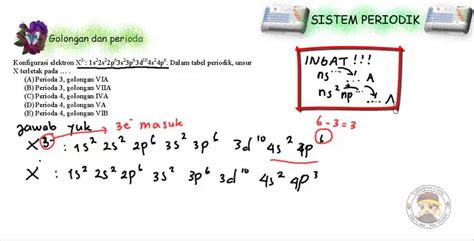 SISTEM PERIODIK
Golongan dan perioda
Konfigurasi elektron X³⁻ : 1s²2s²2p⁶3s²3p⁶3d¹⁰4s²4p⁶. Dalam tabel periodik, unsur
X terletak pada ....
(A) Perioda 3, golongan VIA
(B) Perioda 3, golongan VIIA
(C) Perioda 4, golongan IVA
(D) Perioda 4, golongan VA
(E) Perioda 4, golongan VIB
INGAT !!!
ns ... A
ns² np ... A
Jawab yuk 3e⁻ masuk
6 - 3 = 3
X³⁻ : 1s² 2s² 2p⁶ 3s² 3p⁶ 3d¹⁰ 4s² 4p⁶
X : 1s² 2s² 2p⁶ 3s² 3p⁶ 3d¹⁰ 4s² 4p³